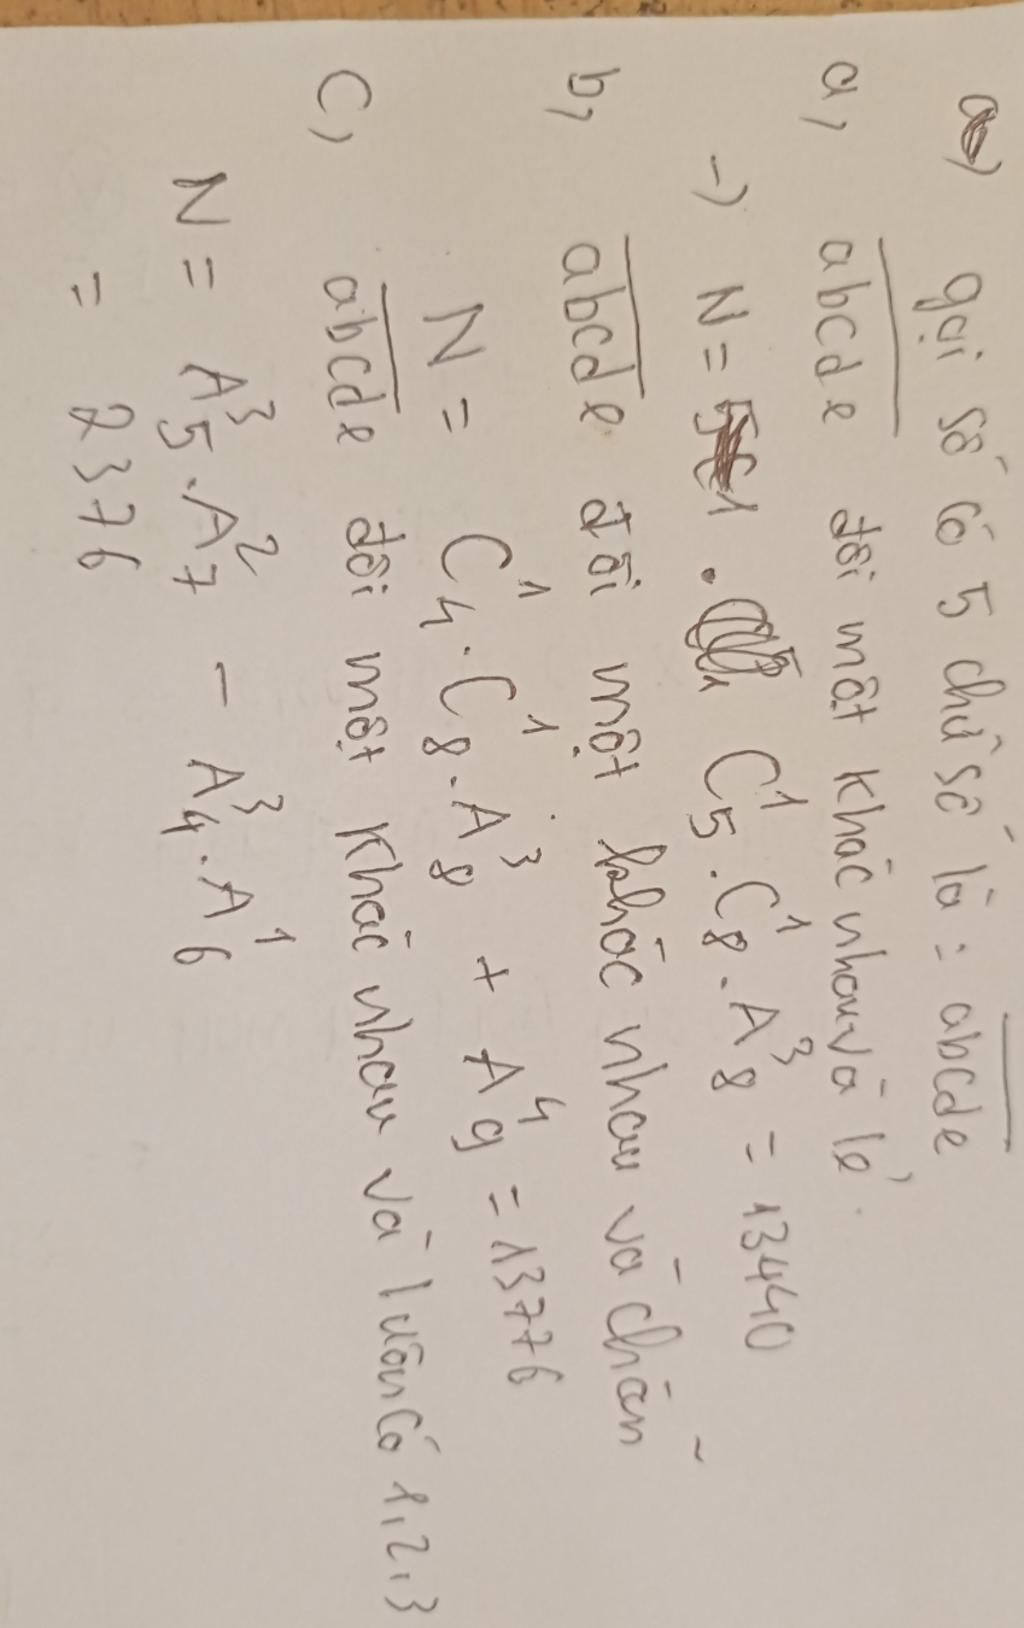 gọi số có 5 chữ số là : abcde
a, abcde đôi một khác nhau và lẻ.
→ N = 1 . C¹₅ . C¹₈ . A³₈ = 13440
b, abcde đôi một khác nhau và chẵn
N = C¹₄ . C¹₈ . A³₈ + A⁴₉ = 13776
C, abcde đôi một khác nhau và luôn có 1, 2, 3
N = A³₅ . A²₇ - A³₄ . A¹₆
= 2376